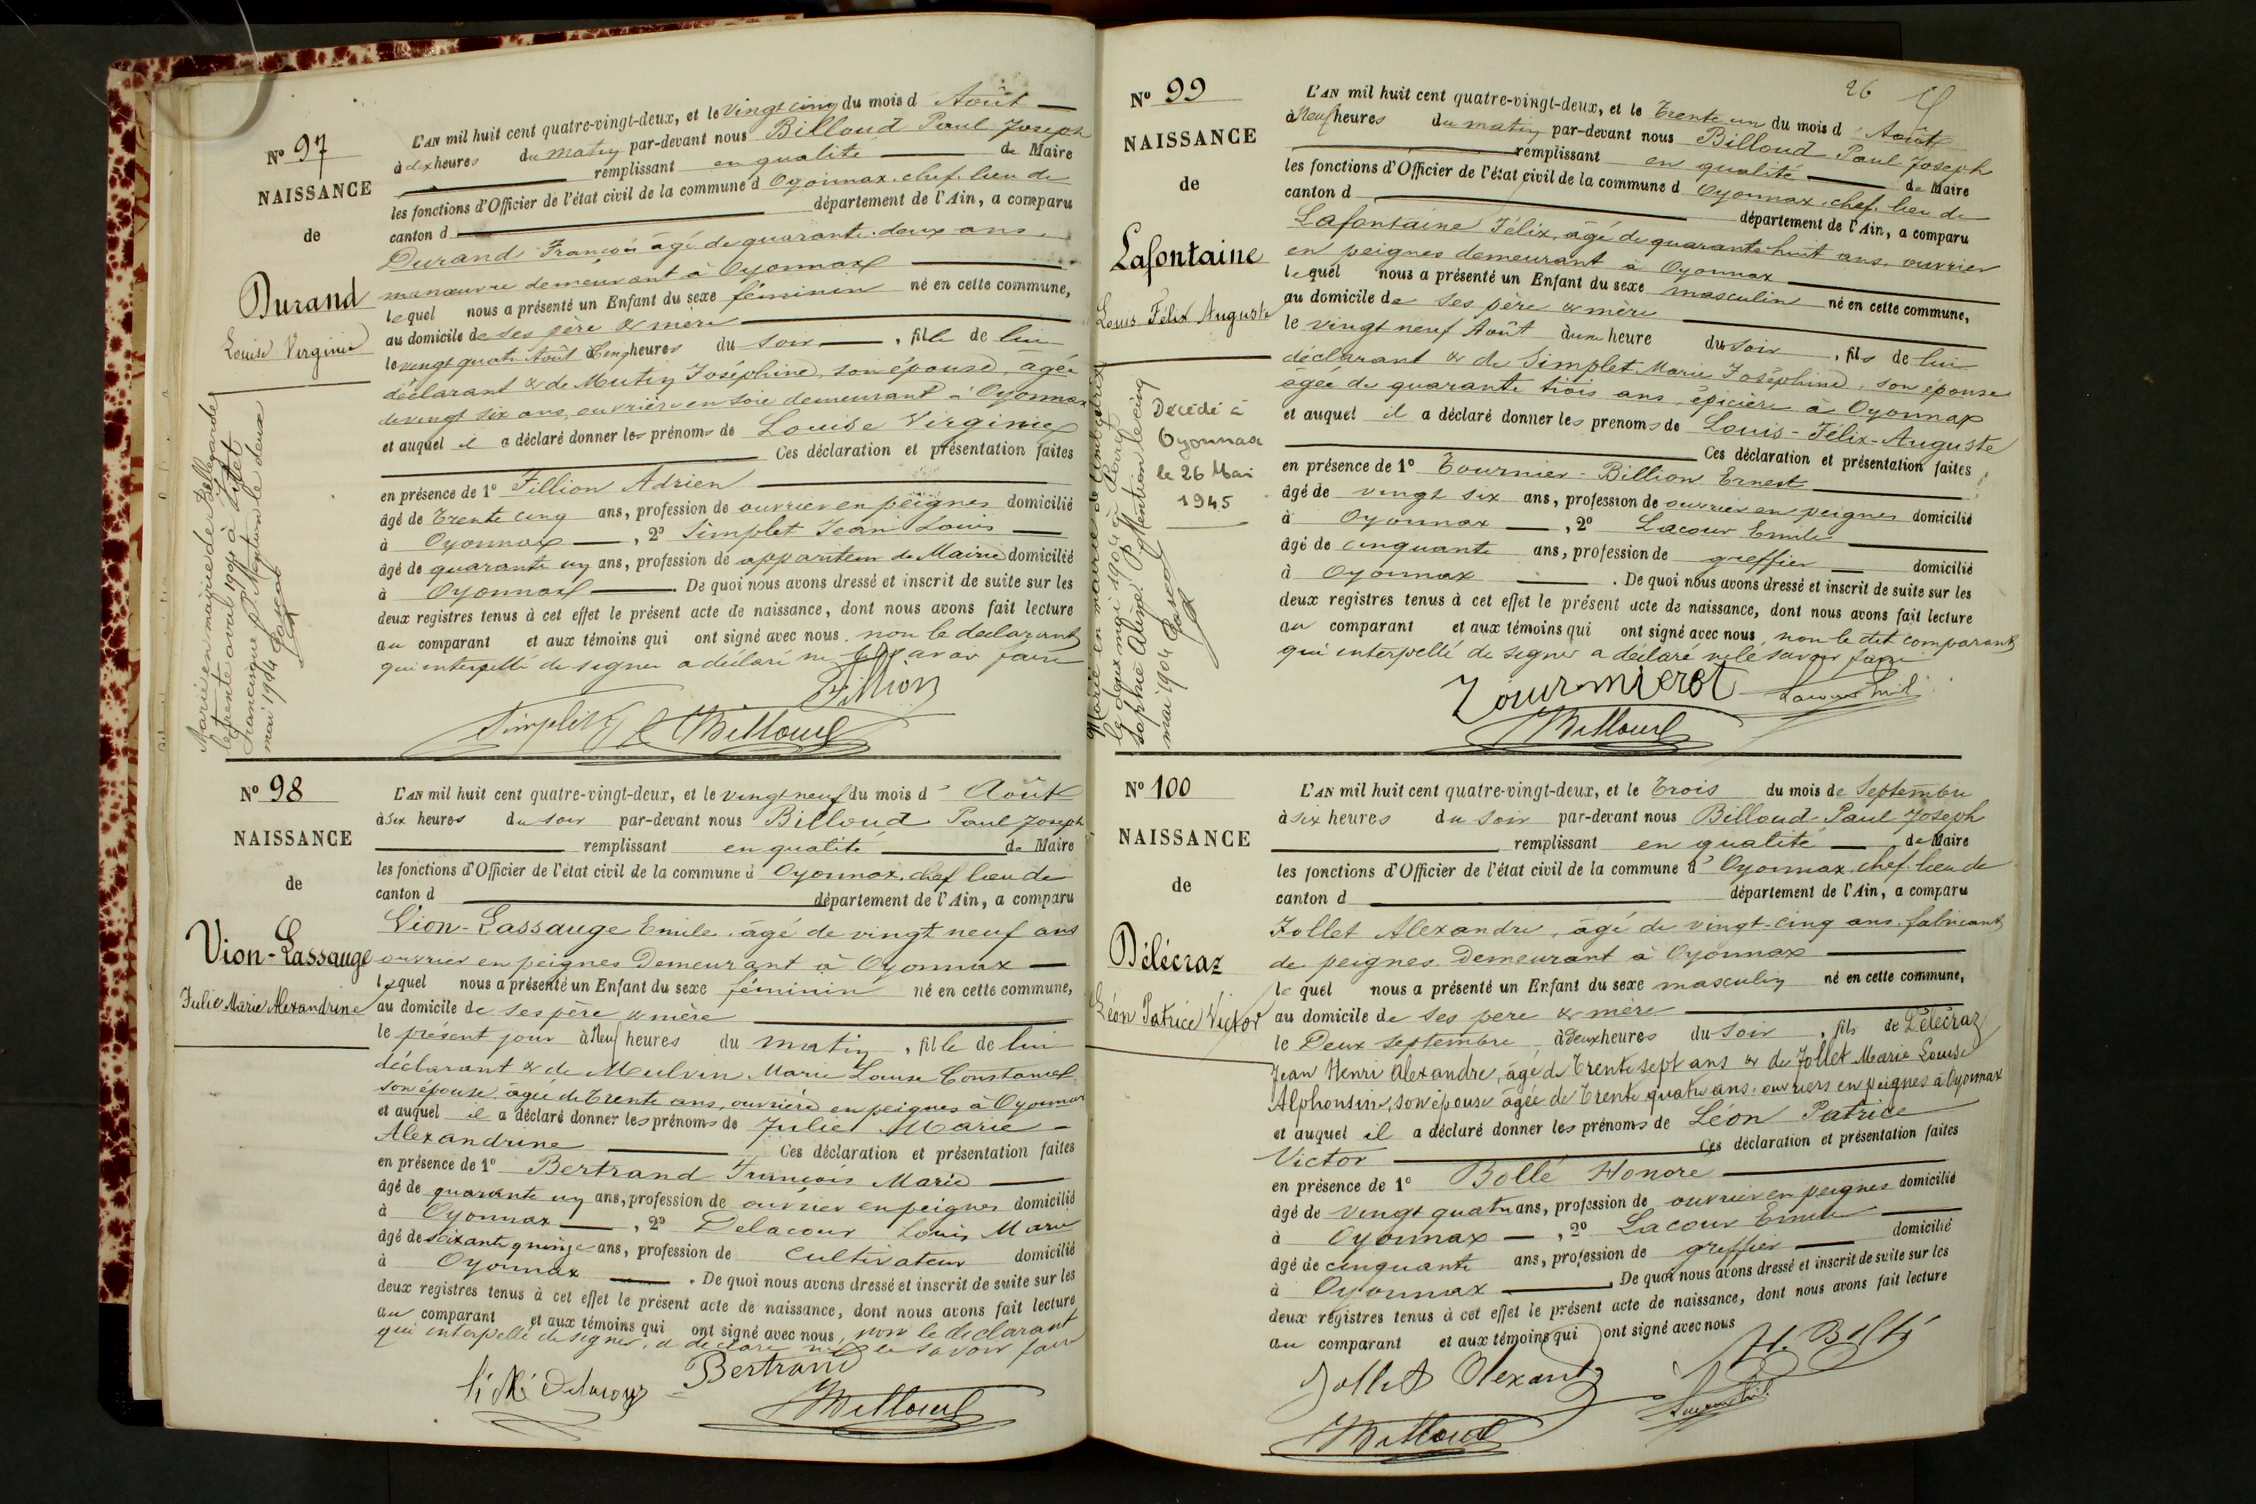 N° 97
NAISSANCE
de
Durand
Louise Virginie
Marié en mairie de Bellegarde
le trente avril 1904 à Pittet
Francisque. Mention le deux
mai 1904 Pascal
L'AN mil huit cent quatre-vingt-deux, et le vingt cinq du mois d' Août
à dix heures du matin par-devant nous Billoud Paul Joseph
remplissant en qualité de Maire
les fonctions d'Officier de l'état civil de la commune d' Oyonnax, chef lieu de
canton d département de l'Ain, a comparu
Durand François âgé de quarante deux ans
manœuvre demeurant à Oyonnax
lequel nous a présenté un Enfant du sexe féminin né en cette commune,
au domicile de ses père & mère
le vingt quatre Août à Cinq heures du soir, fille de lui
déclarant & de Mutin Joséphine, son épouse, âgée
de vingt six ans, ouvrière en soie demeurant à Oyonnax
et auquel il a déclaré donner les prénoms de Louise Virginie
Ces déclaration et présentation faites
en présence de 1° Fillion Adrien
âgé de trente cinq ans, profession de ouvrier en peignes domicilié
à Oyonnax, 2° Simplet Jean Louis
âgé de quarante un ans, profession de appariteur de Mairie domicilié
à Oyonnax. De quoi nous avons dressé et inscrit de suite sur les
deux registres tenus à cet effet le présent acte de naissance, dont nous avons fait lecture
au comparant et aux témoins qui ont signé avec nous, non le déclarant
qui interpellé de signer a déclaré ne le savoir faire
Fillion
Simplet Billoud
N° 98
NAISSANCE
de
Vion-Lassauge
Julie Marie Alexandrine
L'AN mil huit cent quatre-vingt-deux, et le vingt neuf du mois d' Août
à six heures du soir par-devant nous Billoud Paul Joseph
remplissant en qualité de Maire
les fonctions d'Officier de l'état civil de la commune d' Oyonnax, chef lieu de
canton d département de l'Ain, a comparu
Vion-Lassauge Emile, âgé de vingt neuf ans
ouvrier en peignes Demeurant à Oyonnax
lequel nous a présenté un Enfant du sexe féminin né en cette commune,
au domicile de ses père & mère
le présent jour à Neuf heures du matin, fille de lui
déclarant & de Meulven Marie Louise Constance
son épouse, âgée de trente ans, ouvrière en peignes à Oyonnax
et auquel il a déclaré donner les prénoms de Julie Marie
Alexandrine Ces déclaration et présentation faites
en présence de 1° Bertrand François Marie
âgé de quarante un ans, profession de ouvrier en peignes domicilié
à Oyonnax, 2° Delacour Louis Marie
âgé de soixante quinze ans, profession de Cultivateur domicilié
à Oyonnax. De quoi nous avons dressé et inscrit de suite sur les
deux registres tenus à cet effet le présent acte de naissance, dont nous avons fait lecture
au comparant et aux témoins qui ont signé avec nous, non le déclarant
qui interpellé de signer, a déclaré ne le savoir faire
Delacour Bertrand
Billoud
26
N° 99
NAISSANCE
de
Lafontaine
Louis Félix Auguste
Marié en mairie de
le deux mai 1904 à Perret
Sophie Aline. Mention le cinq
mai 1904 Pascal
Décédé à
Oyonnax
le 26 Mai
1945
L'AN mil huit cent quatre-vingt-deux, et le trente un du mois d' Août
à Neuf heures du matin par-devant nous Billoud Paul Joseph
remplissant en qualité de Maire
les fonctions d'Officier de l'état civil de la commune d' Oyonnax, chef lieu de
canton d département de l'Ain, a comparu
Lafontaine Félix, âgé de quarante huit ans, ouvrier
en peignes demeurant à Oyonnax
lequel nous a présenté un Enfant du sexe masculin né en cette commune,
au domicile de ses père & mère
le vingt neuf Août à une heure du soir, fils de lui
déclarant & de Simplet Marie Joséphine, son épouse
âgée de quarante trois ans, épicière à Oyonnax
et auquel il a déclaré donner les prénoms de Louis-Félix-Auguste
Ces déclaration et présentation faites
en présence de 1° Tournier-Billion Ernest
âgé de vingt six ans, profession de ouvrier en peignes domicilié
à Oyonnax, 2° Lacour Emile
âgé de cinquante ans, profession de greffier domicilié
à Oyonnax. De quoi nous avons dressé et inscrit de suite sur les
deux registres tenus à cet effet le présent acte de naissance, dont nous avons fait lecture
au comparant et aux témoins qui ont signé avec nous, non le dit comparant
qui interpellé de signer a déclaré ne le savoir faire
Lacour Emile
Billoud
N° 100
NAISSANCE
de
Délécraz
Léon Patrice Victor
L'AN mil huit cent quatre-vingt-deux, et le trois du mois de Septembre
à six heures du soir par-devant nous Billoud Paul Joseph
remplissant en qualité de Maire
les fonctions d'Officier de l'état civil de la commune d' Oyonnax, chef lieu de
canton d département de l'Ain, a comparu
Jollet Alexandre, âgé de vingt-cinq ans, fabricant
de peignes Demeurant à Oyonnax
lequel nous a présenté un Enfant du sexe masculin né en cette commune,
au domicile de ses père & mère
le Deux septembre à deux heures du soir, fils de Délécraz
Jean Henri Alexandre, âgé de trente sept ans & de Jollet Marie Louise
Alphonsine, son épouse âgée de trente quatre ans, ouvriers en peignes à Oyonnax
et auquel il a déclaré donner les prénoms de Léon Patrice
Victor Ces déclaration et présentation faites
en présence de 1° Bollé Honoré
âgé de vingt quatre ans, profession de ouvrier en peignes domicilié
à Oyonnax, 2° Lacour Emile
âgé de cinquante ans, profession de greffier domicilié
à Oyonnax. De quoi nous avons dressé et inscrit de suite sur les
deux registres tenus à cet effet le présent acte de naissance, dont nous avons fait lecture
au comparant et aux témoins qui ont signé avec nous
Jollet Alexandre H. Bollé
Billoud